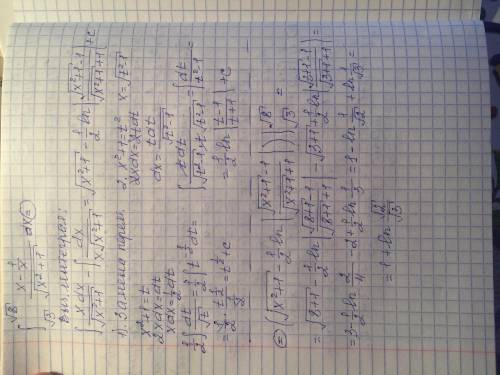 ∫_{√3}^{√8} (x - 1/x)/√(x²+1) dx ⊜
Выч. интеграл:
∫ x dx/√(x²+1) - ∫ dx/(x√(x²+1)) = √(x²+1) - 1/2 ln|(√(x²+1) - 1)/(√(x²+1) + 1)| + c
1) Замена перем.
x²+1=t
2xdx=dt
xdx=1/2 dt
1/2 ∫ dt/√t = 1/2 ∫ t^{-1/2} dt =
2) x²+1=t² x=√(t²-1)
2xdx=2tdt
dx = tdt/√(t²-1)
∫ tdt/(√(t²-1)·t√(t²-1)) = ∫ dt/(t²-1) =
= 1/2 ln|(t-1)/(t+1)| + c
⊜ (√(x²+1) - 1/2 ln|(√(x²+1) - 1)/(√(x²+1) + 1)|)|_{√3}^{√8} =
= √(8+1) - 1/2 ln|(√(8+1) - 1)/(√(8+1) + 1)| - √(3+1) + 1/2 ln|(√(3+1) - 1)/(√(3+1) + 1)| =
= 3 - 1/2 ln 2/4 - 2 + 1/2 ln 1/3 = 1 - ln 1/√2 + ln 1/√3 =
= 1 + ln √2/√3